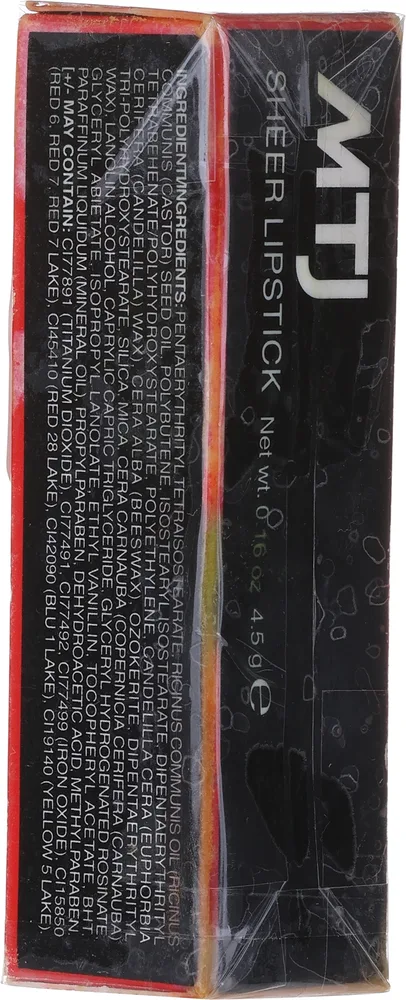 MTJ
SHEER LIPSTICK Net wt. 0.16 oz 4.5 g e
INGREDIENTI/INGREDIENTS: PENTAERYTHRITYL TETRAISOSTEARATE, RICINUS COMMUNIS OIL (RICINUS
COMMUNIS (CASTOR) SEED OIL, POLYBUTENE, ISOSTEARYL ISOSTEARATE, DIPENTAERYTHRITYL
TETRABEHENATE/POLYHYDROXYSTEARATE, POLYETHYLENE, CANDELILLA CERA (EUPHORBIA
CERIFERA (CANDELILLA) WAX), CERA ALBA (BEESWAX), OZOKERITE, DIPENTAERYTHRITYL
TRI-POLYHYDROXYSTEARATE, SILICA, MICA, CERA CARNAUBA (COPERNICIA CERIFERA (CARNAUBA)
WAX), LANOLIN ALCOHOL, CAPRYLIC CAPRIC TRIGLYCERIDE, GLYCERYL HYDROGENATED ROSINATE,
GLYCERYL ABIETATE, ISOPROPYL LANOLATE, ETHYL VANILLIN, TOCOPHERYL ACETATE, BHT,
PARAFFINUM LIQUIDUM (MINERAL OIL), PROPYLPARABEN, DEHYDROACETIC ACID, METHYLPARABEN.
[+/- MAY CONTAIN: CI77891 (TITANIUM DIOXIDE), CI77491, CI77492, CI77499 (IRON OXIDE), CI15850
(RED 6, RED 7, RED 7 LAKE), CI45410 (RED 28 LAKE), CI42090 (BLU 1 LAKE), CI19140 (YELLOW 5 LAKE).